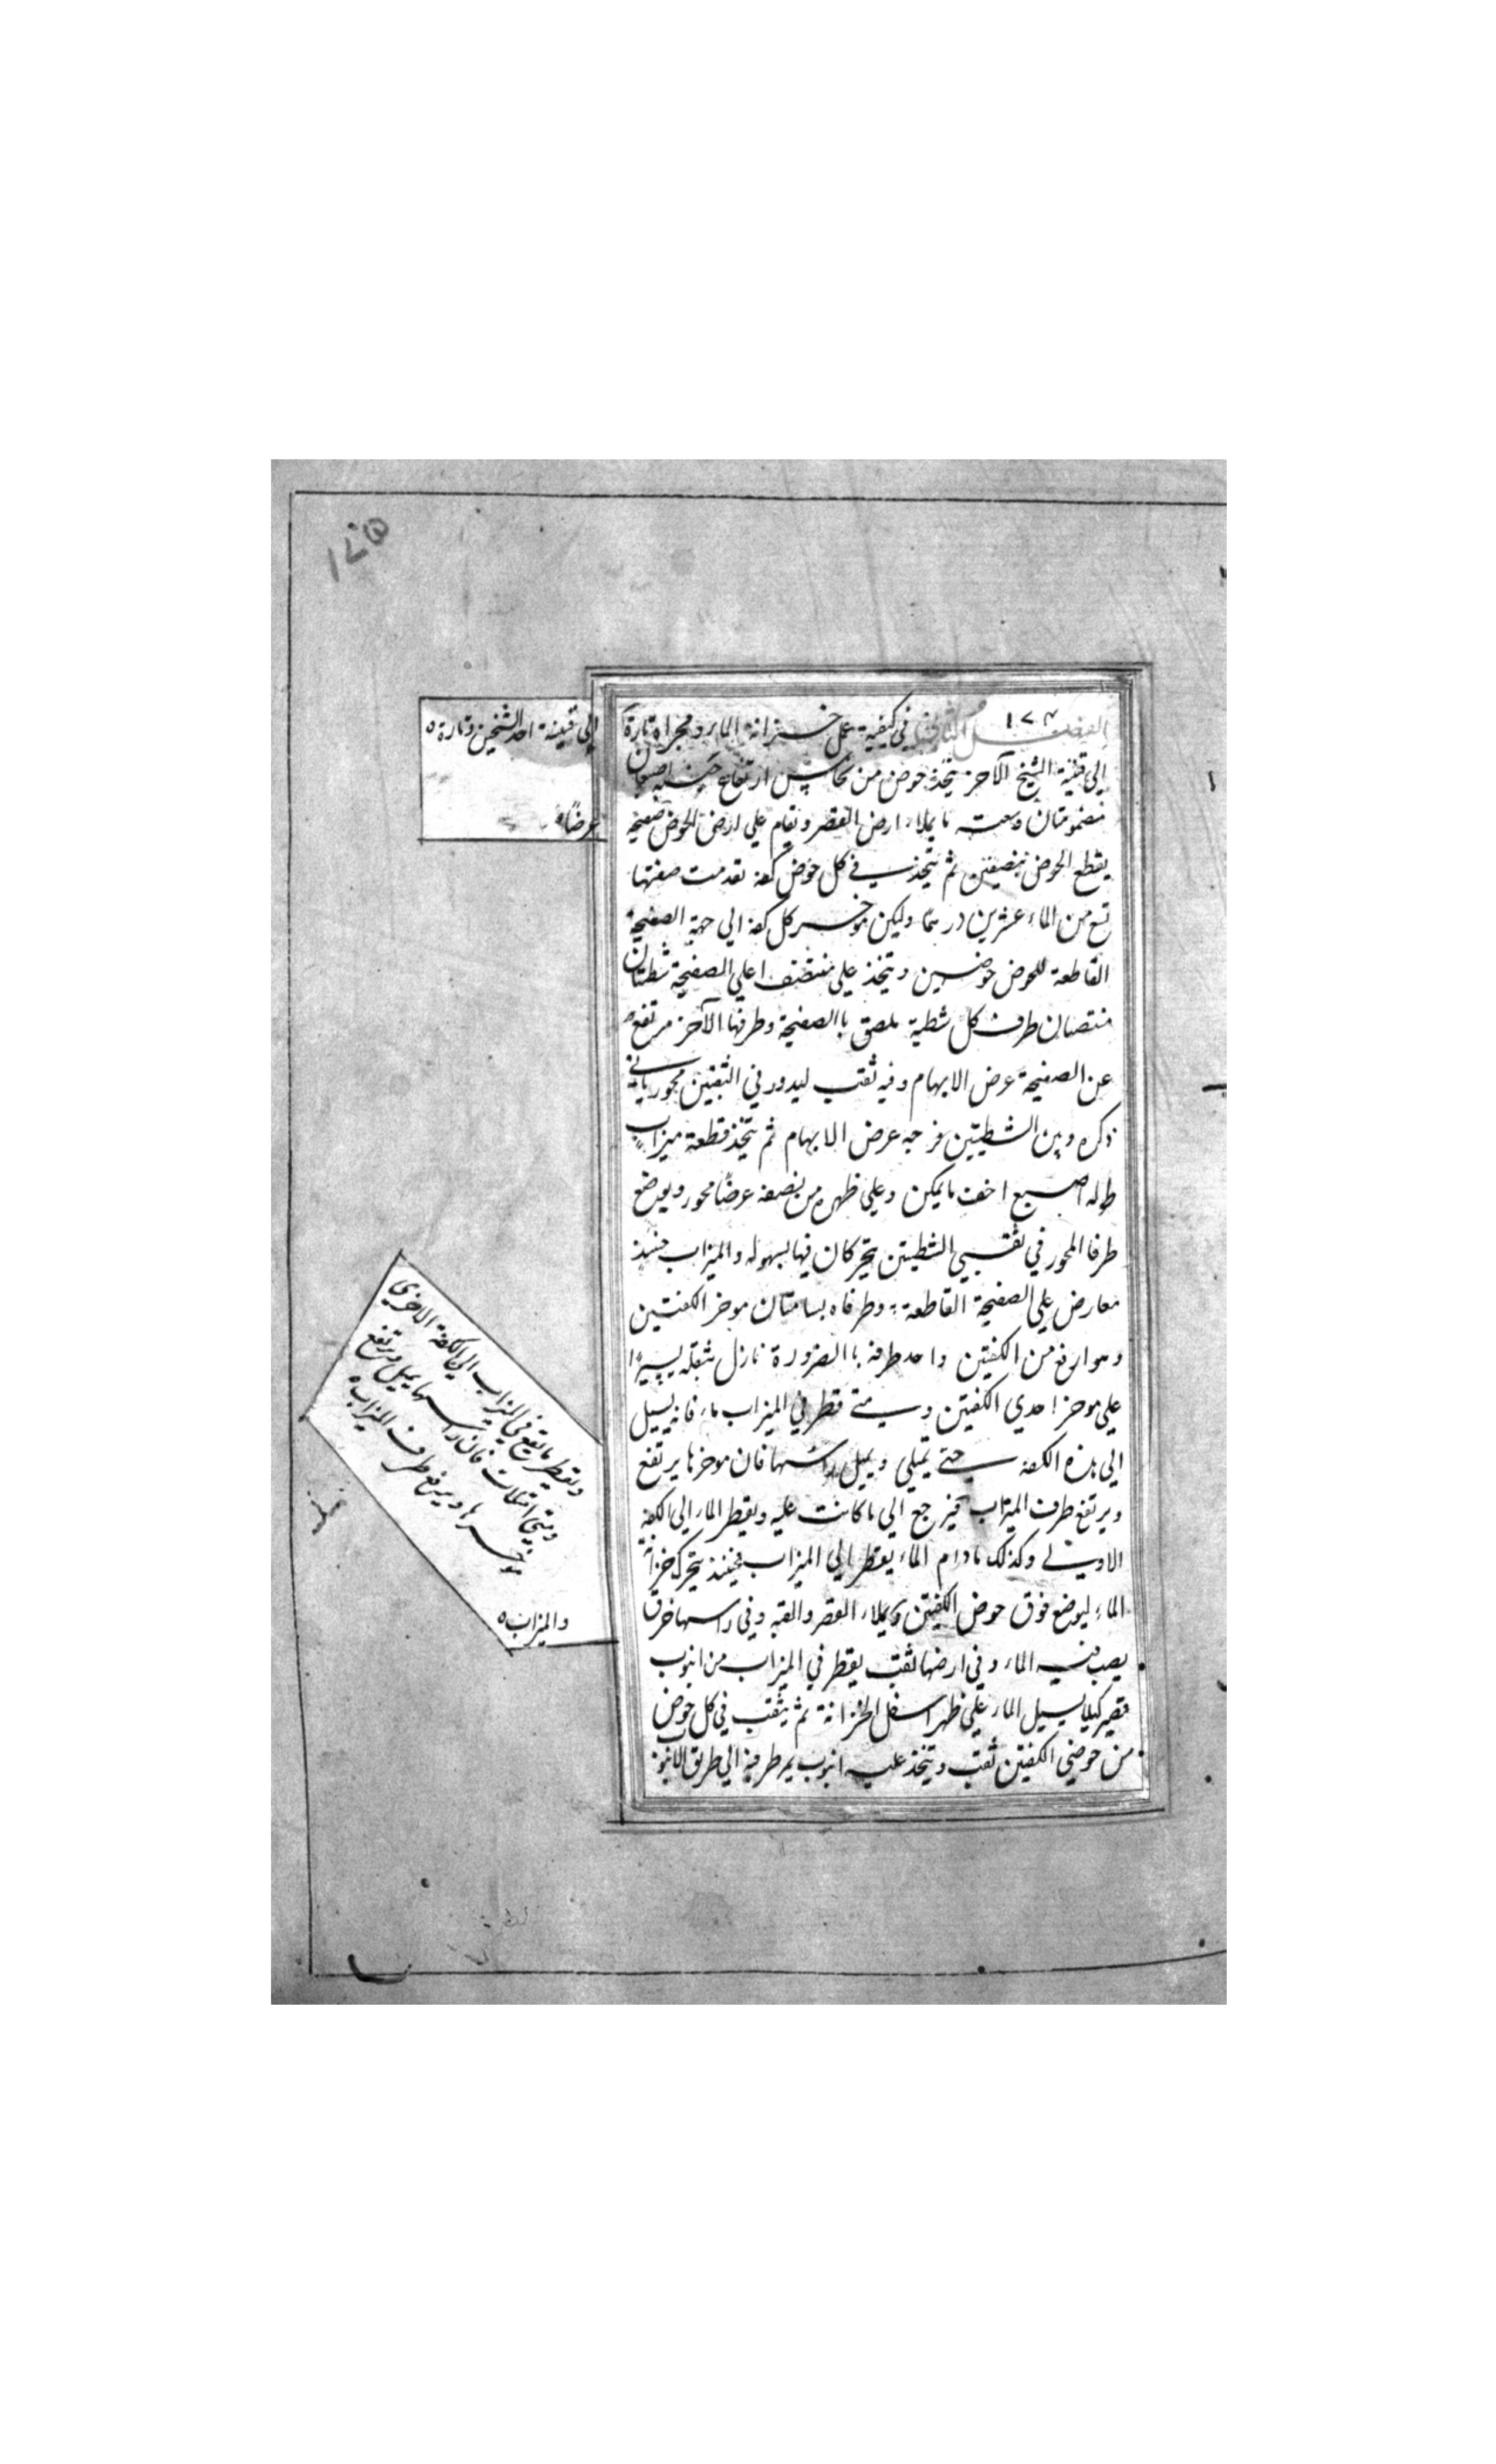 ١٧٥
١٧٤
الفصل الثاني في كيفية عمل خزانة الماء ومجراه تارة
إلى قنينة الشيخ الآخر يتخذ حوض من نحاس ارتفاع جنبه اصبعان
مضمومتان وسعته ما يملاء ارض القصر ويقام على ارض الحوض صفيحة
يقطع الحوض بنصفين ثم يتخذ في كل حوض كفة تقدمت صفتها
تسع من الماء عشرين درهمًا وليكن مؤخر كل كفة الى جهة الصفيحة
القاطعة للحوض حوضين ويتخذ على منتصف اعلى الصفيحة شظيتان
منتصبان طرف كل شظية ملصق باالصفيحة وطرفها الآخر مرتفع
عن الصفيحة عرض الابهام وفيه ثقب ليدور في الثقبين محور يأتي
ذكره وبين الشظيتين فرجة عرض الابهام ثم يتخذ قطعة ميزاب
طوله اصبع اخف ما يمكن وعلى ظهره من نصفه عرضًا محور ويوضع
طرفا المحور في ثقبي الشظيتين يتحركان فيها بسهوله والميزاب حينئذ
معارض على الصفيحة القاطعة وطرفاه يسامتان موخر الكفتين
وهو ارفع من الكفتين واحد طرفيه باالضرورة نازل بثقله يسيرًا
على موخر احدى الكفتين ومتى قطر في الميزاب ماء فانه يسيل
الى هذه الكفه حتى تمتلي ويميل راسها فان موخرها يرتفع
ويرتفع طرف الميزاب فيرجع الى ما كانت عليه ويقطر الماء الى الكفة
الاولى وكذلك مادام الماء يقطر الى الميزاب فحينئذ يتحرك خزانة
الماء ليوضع فوق حوض الكفتين ويملاء القصر والقبه وفي راسها خرق
يصب فيه الماء وفي ارضها ثقب يقطر في الميزاب من انبوب
قصير كيلا يسيل الماء على ظهر اسفل الخزانة ثم يثقب في كل حوض
من حوضي الكفتين ثقب ويتخذ عليه انبوب يمر طرفه الى طريق الانبوب
إلى قنينة احد الشخين وتارة
عرضًا
ويقطر ما يقع في الميزاب الى الكفة الاخرى
ومتى امتلات فان راسها يميل ويرتفع
موخرها ويرفع طرف الميزاب
والميزاب